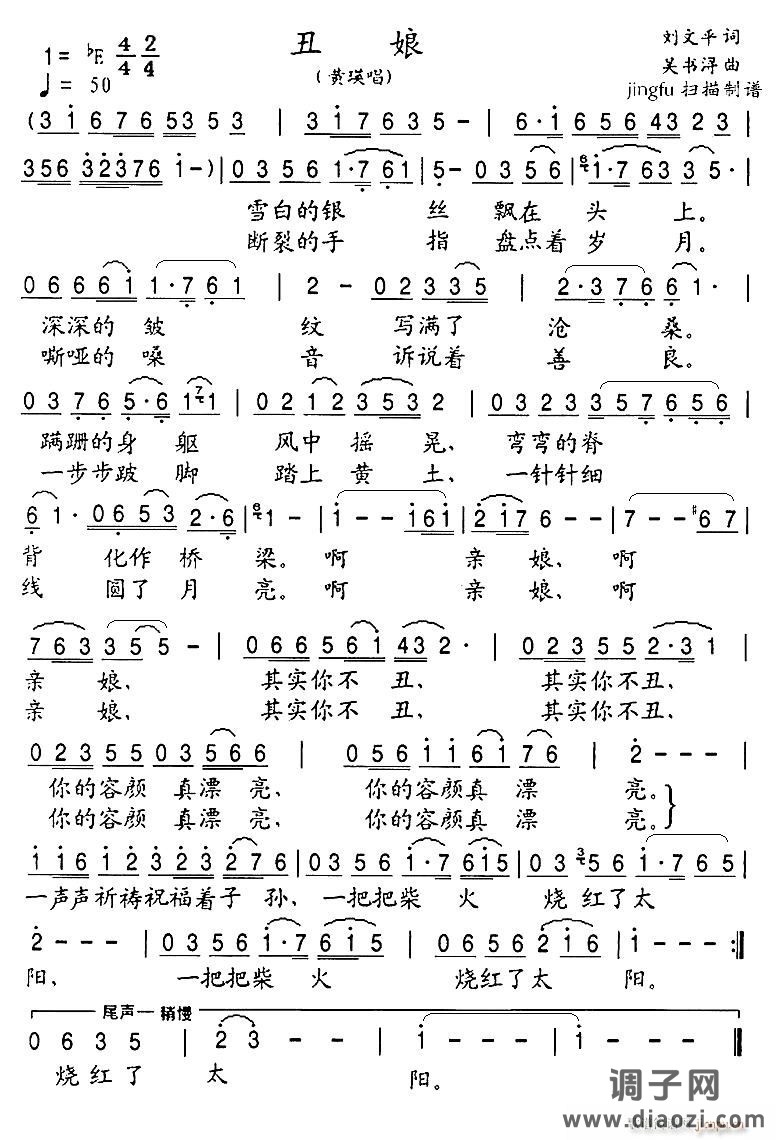 丑 娘
1= ♭E 4/4 2/4
♩= 50
(黄瑛唱)
刘文平 词
吴书浔 曲
jingfu 扫描制谱
(3 i 6 7 6 5 3 5 3 | 3 i 7 6 3 5 - | 6 · i 6 5 6 4 3 2 3 |
3 5 6 3 2 3 7 6 i - ) | 0 3 5 6 1 · 7 6 1 | 5 - 0 3 5 6 | 1 · 7 6 3 3 5 · |
雪白的银 丝 飘在 头 上。
断裂的手 指 盘点着 岁 月。
0 6 6 6 i 1 · 7 6 1 | 2 - 0 2 3 3 5 | 2 · 3 7 6 6 1 · |
深深的 皱 纹 写满了 沧 桑。
嘶哑的 嗓 音 诉说着 善 良。
0 3 7 6 5 · 6 1 1 | 0 2 1 2 3 5 3 2 | 0 3 2 3 3 5 7 6 5 6 |
蹒跚的身 躯 风中 摇 晃、 弯弯的脊
一步步跛 脚 踏上 黄 土、 一针针细
6 1 · 0 6 5 3 2 · 6 | 1 - | i - - i 6 i | 2 i 7 6 - - | 7 - - #6 7 |
背 化作 桥 梁。 啊 亲 娘、 啊
线 圆了 月 亮。 啊 亲 娘、 啊
7 6 3 3 5 5 - | 0 6 6 5 6 i 4 3 2 · | 0 2 3 5 5 2 · 3 1 |
亲 娘、 其实你不 丑、 其实你不 丑、
亲 娘、 其实你不 丑、 其实你不 丑、
0 2 3 5 5 0 3 5 6 6 | 0 5 6 i i 6 i 7 6 | 2 - - - |
你的容颜 真漂 亮、 你的容颜真 漂 亮。
你的容颜 真漂 亮、 你的容颜真 漂 亮。
i i 6 i 2 3 2 3 2 7 6 | 0 3 5 6 i · 7 6 i 5 | 0 3 5 6 i · 7 6 5 |
一声声祈祷祝福着子 孙、 一把把柴 火 烧红了太
2 - - - | 0 3 5 6 i · 7 6 i 5 | 0 6 5 6 2 i 6 | i - - - :‖
阳、 一把把柴 火 烧红了太 阳。
尾声 — 稍慢
0 6 3 5 | i 2 3 - | i - - - | i - - - ‖
烧红了 太 阳。
调子网
www.diaozi.com